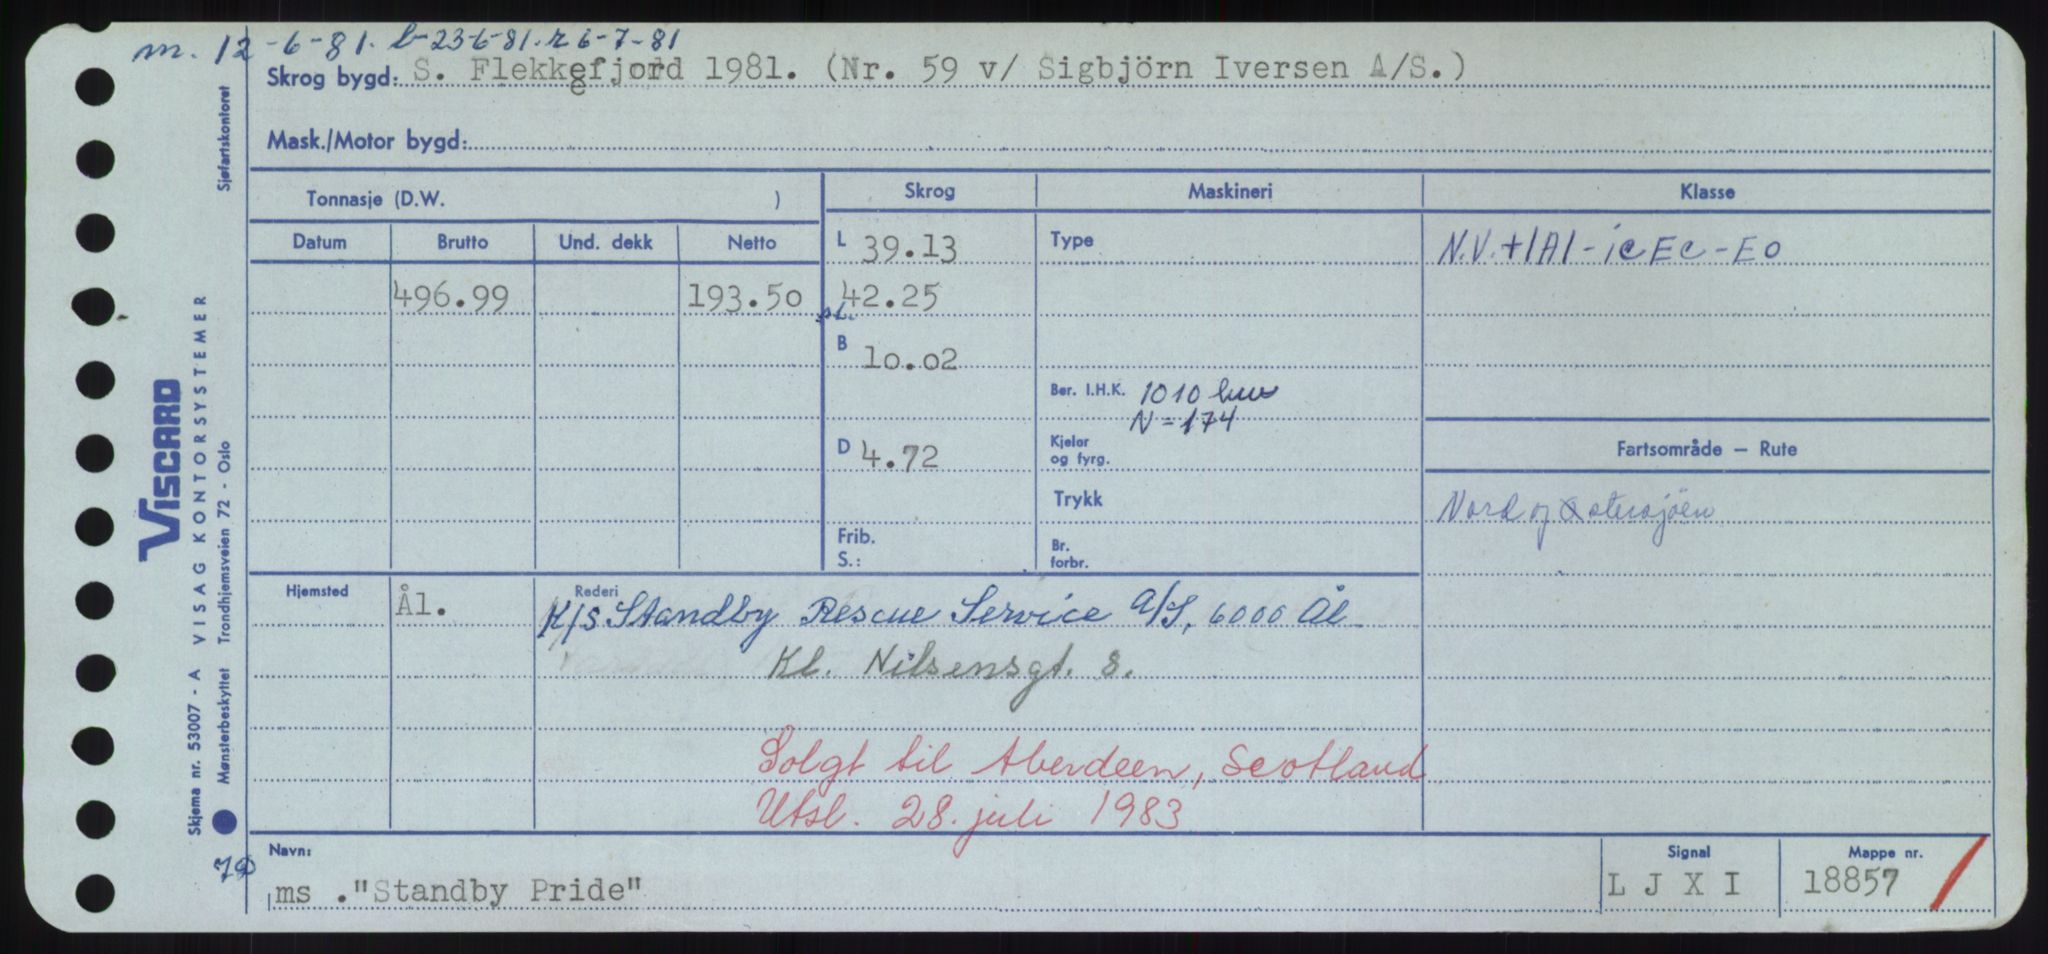 m. 12-6-81. b-23-6-81. r 6-7-81
Skrog bygd: S. Flekkefjord 1981. (Nr. 59 v/ Sigbjörn Iversen A/S.)
e
Mask./Motor bygd:
Tonnasje (D.W. )
Skrog
Maskineri
Klasse
Datum Brutto Und. dekk Netto
496.99 193.50
L 39.13
42.25
B 10.02
D 4.72
Frib.
S.:
Type
Ber. I.H.K. 1010
N = 174
Kjeler
og fyrg.
Trykk
Br.
forbr.
N.V. +1A1-icEC-EO
Fartsområde – Rute
Nord og Østersjöen
Hjemsted Ål.
Rederi
K/S Standby Rescue Service A/S, 6000 Ål
Kl. Nilsensgt. 8.
Solgt til Aberdeen, Scotland
Utsl. 28. juli 1983
Navn:
ms ."Standby Pride"
Signal
L J X I
Mappe nr.
18857
Skjema nr. 53007 - A VISAG KONTORSYSTEMER
Mønsterbeskyttet Trondhjemsveien 72 - Oslo
Sjøfartskontoret
VISCARD